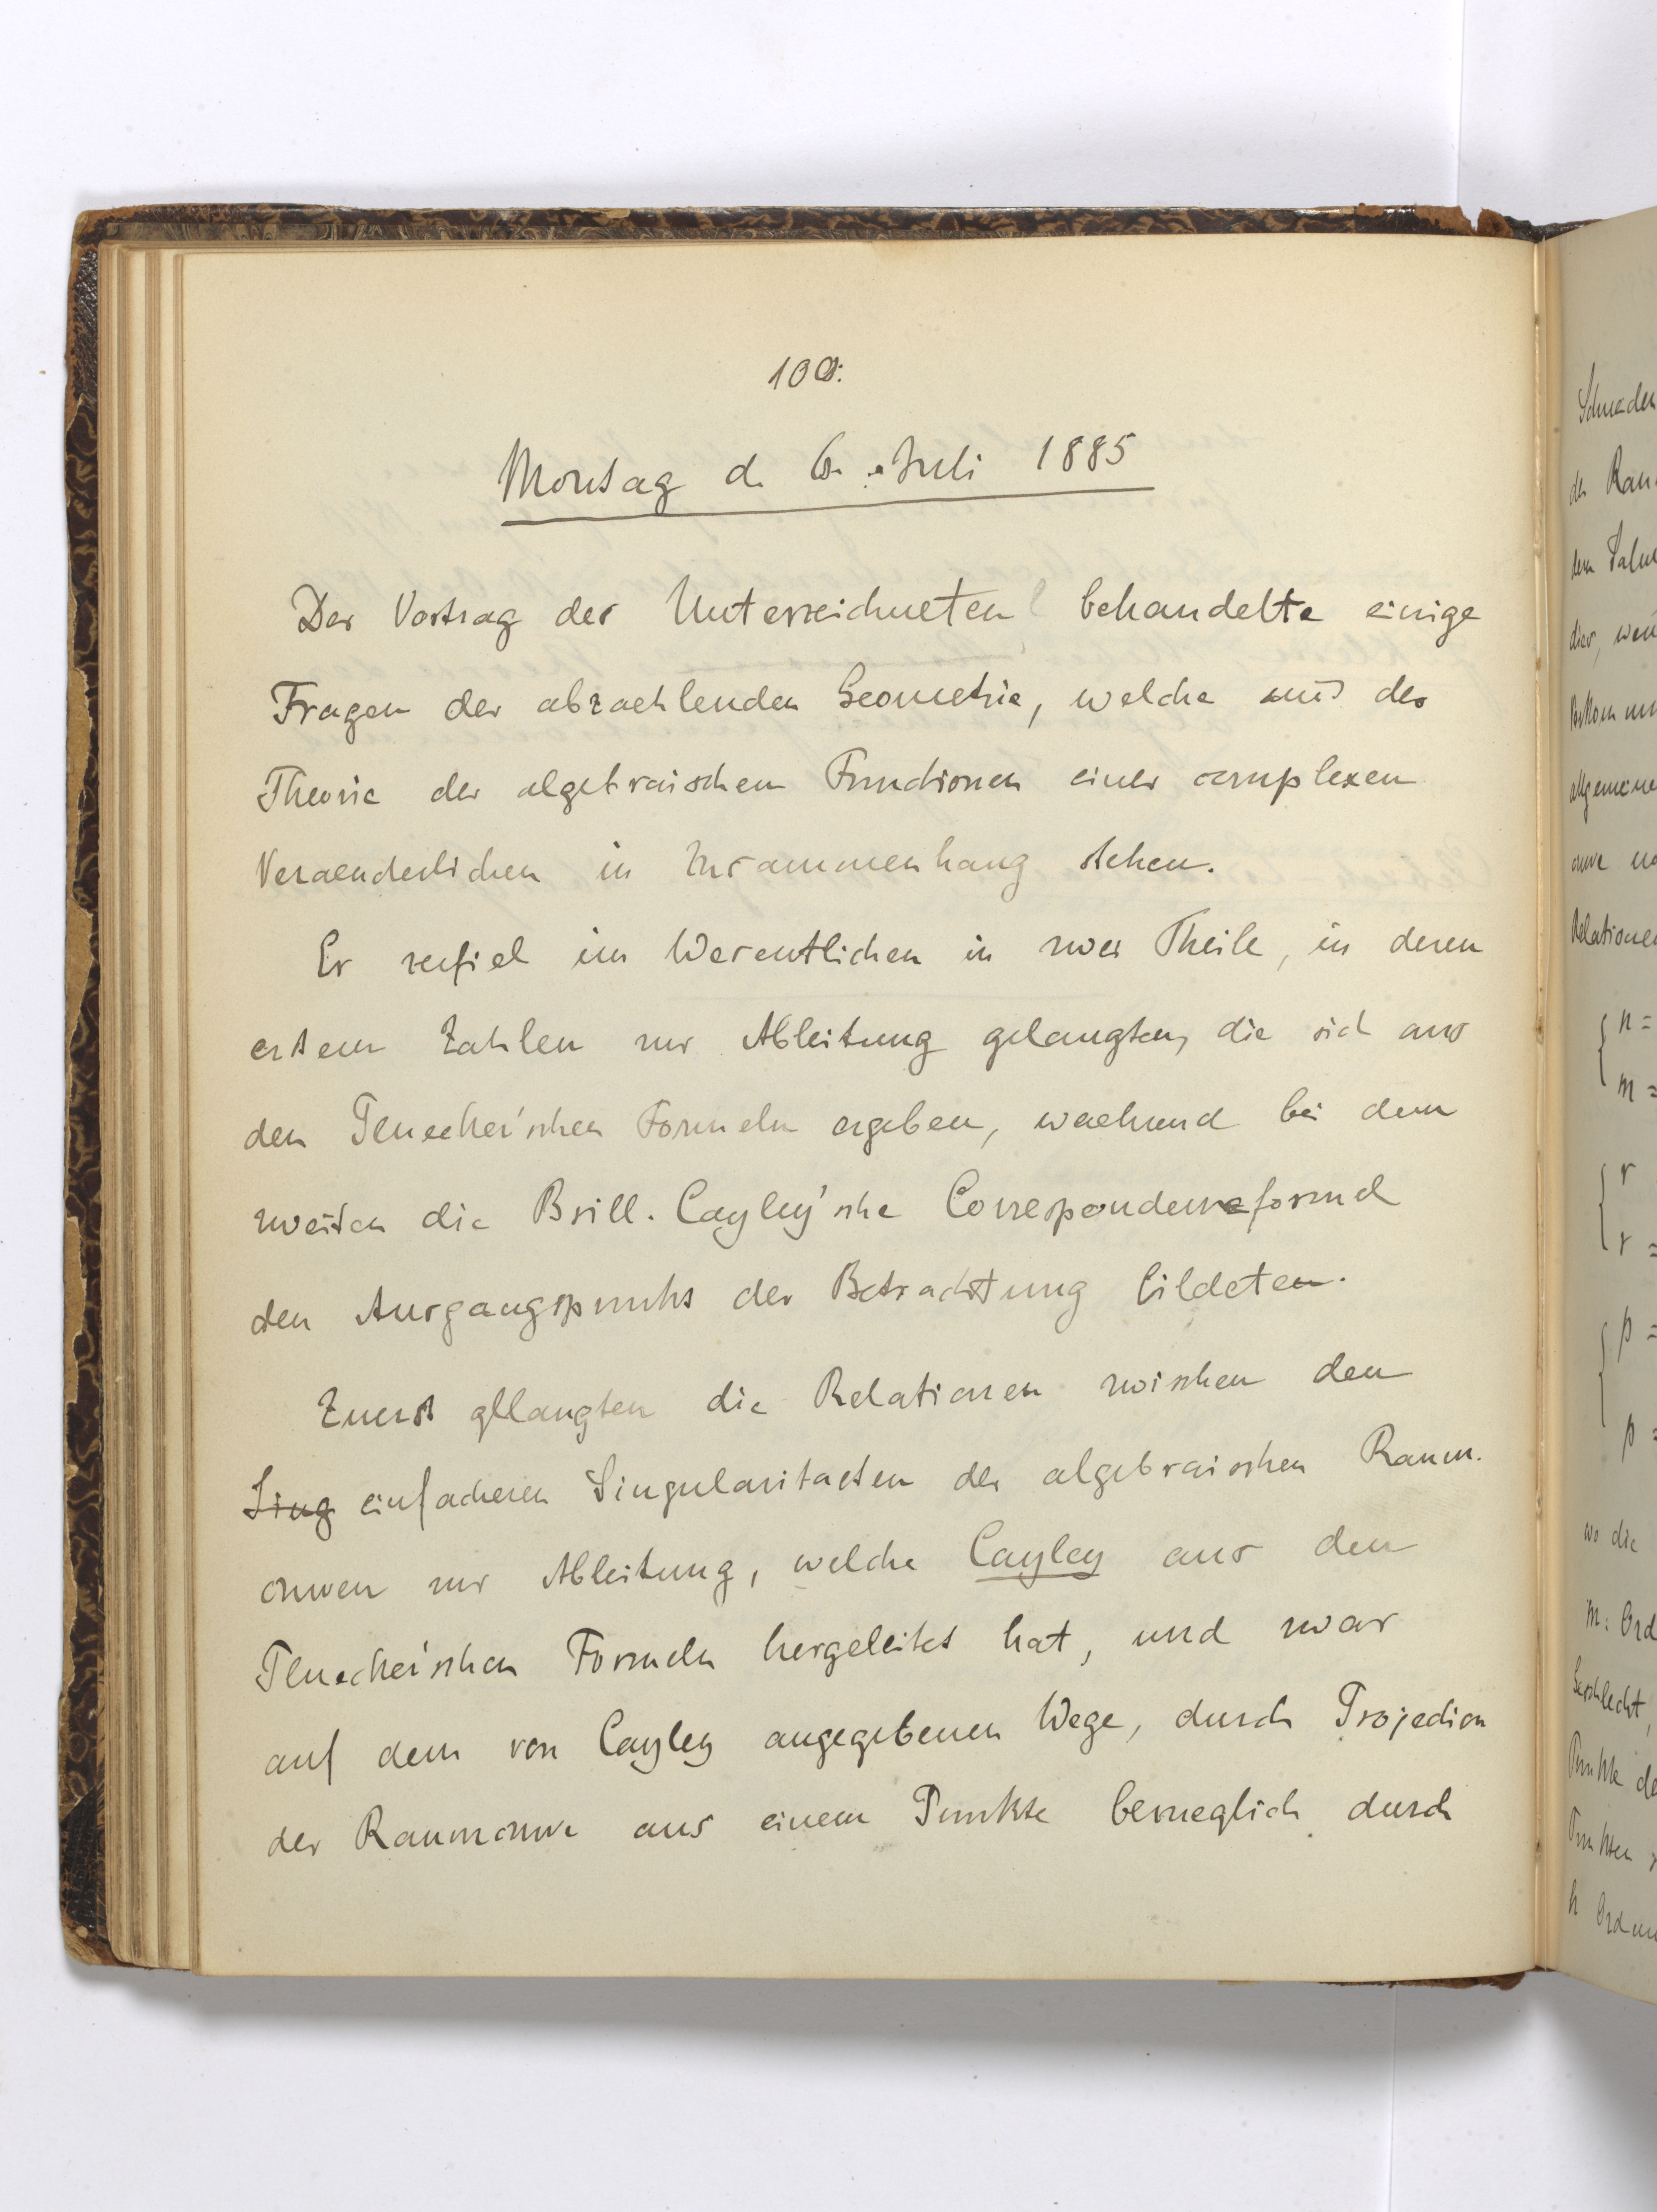 100.
Montag d. 6. Juli 1885
Der Vortrag des Unterzeichneten behandelte einige
Fragen der abzaehlenden Geometrie, welche mit der
Theorie der algebraischen Functionen einer complexen
Veraenderlichen in Zusammenhang stehen.
Er zerfiel im Wesentlichen in zwei Theile, in deren
erstem Zahlen zur Ableitung gelangten, die sich aus
den Pluecker'schen Formeln ergeben, waehrend bei dem
zweiten die Brill-Cayley'sche Correspondenzformel
den Ausgangspunkt der Betrachtung bildeten.
Zuerst gelangten die Relationen zwischen den
Sing einfacheren Singularitaeten der algebraischen Raum-
curven zur Ableitung, welche Cayley aus den
Pluecker'schen Formeln hergeleitet hat, und zwar
auf dem von Cayley angegebenen Wege, durch Projection
der Raumcurve aus einem Punkte bezueglich durch
Schneiden
der Raum
dem
dies, wenn
allgemeine
curve
Relationen
n =
m =
r
r =
p =
p =
wo die
m: Ord
Geschlecht,
Punkte de
Punkten
n Ordnu